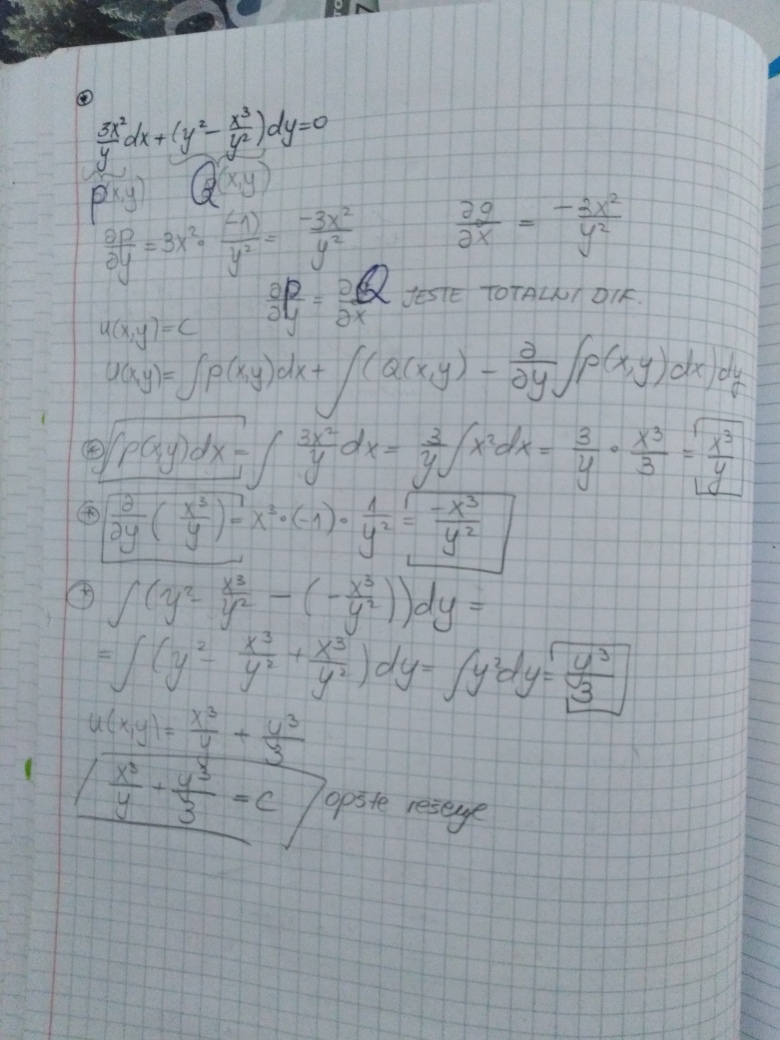 3x²/y dx + (y² - x³/y²) dy = 0
P(x,y) Q(x,y)
∂P/∂y = 3x² · (-1)/y² = -3x²/y² ∂Q/∂x = -3x²/y²
∂P/∂y = ∂Q/∂x JESTE TOTALNI DIF.
u(x,y) = C
u(x,y) = ∫P(x,y)dx + ∫(Q(x,y) - ∂/∂y ∫P(x,y)dx)dy
∫P(x,y)dx = ∫ 3x²/y dx = 3/y ∫x²dx = 3/y · x³/3 = x³/y
∂/∂y (x³/y) = x³ · (-1) · 1/y² = -x³/y²
∫(y² - x³/y² - (-x³/y²))dy =
= ∫(y² - x³/y² + x³/y²)dy = ∫y²dy = y³/3
u(x,y) = x³/y + y³/3
x³/y + y³/3 = C opšte rešenje